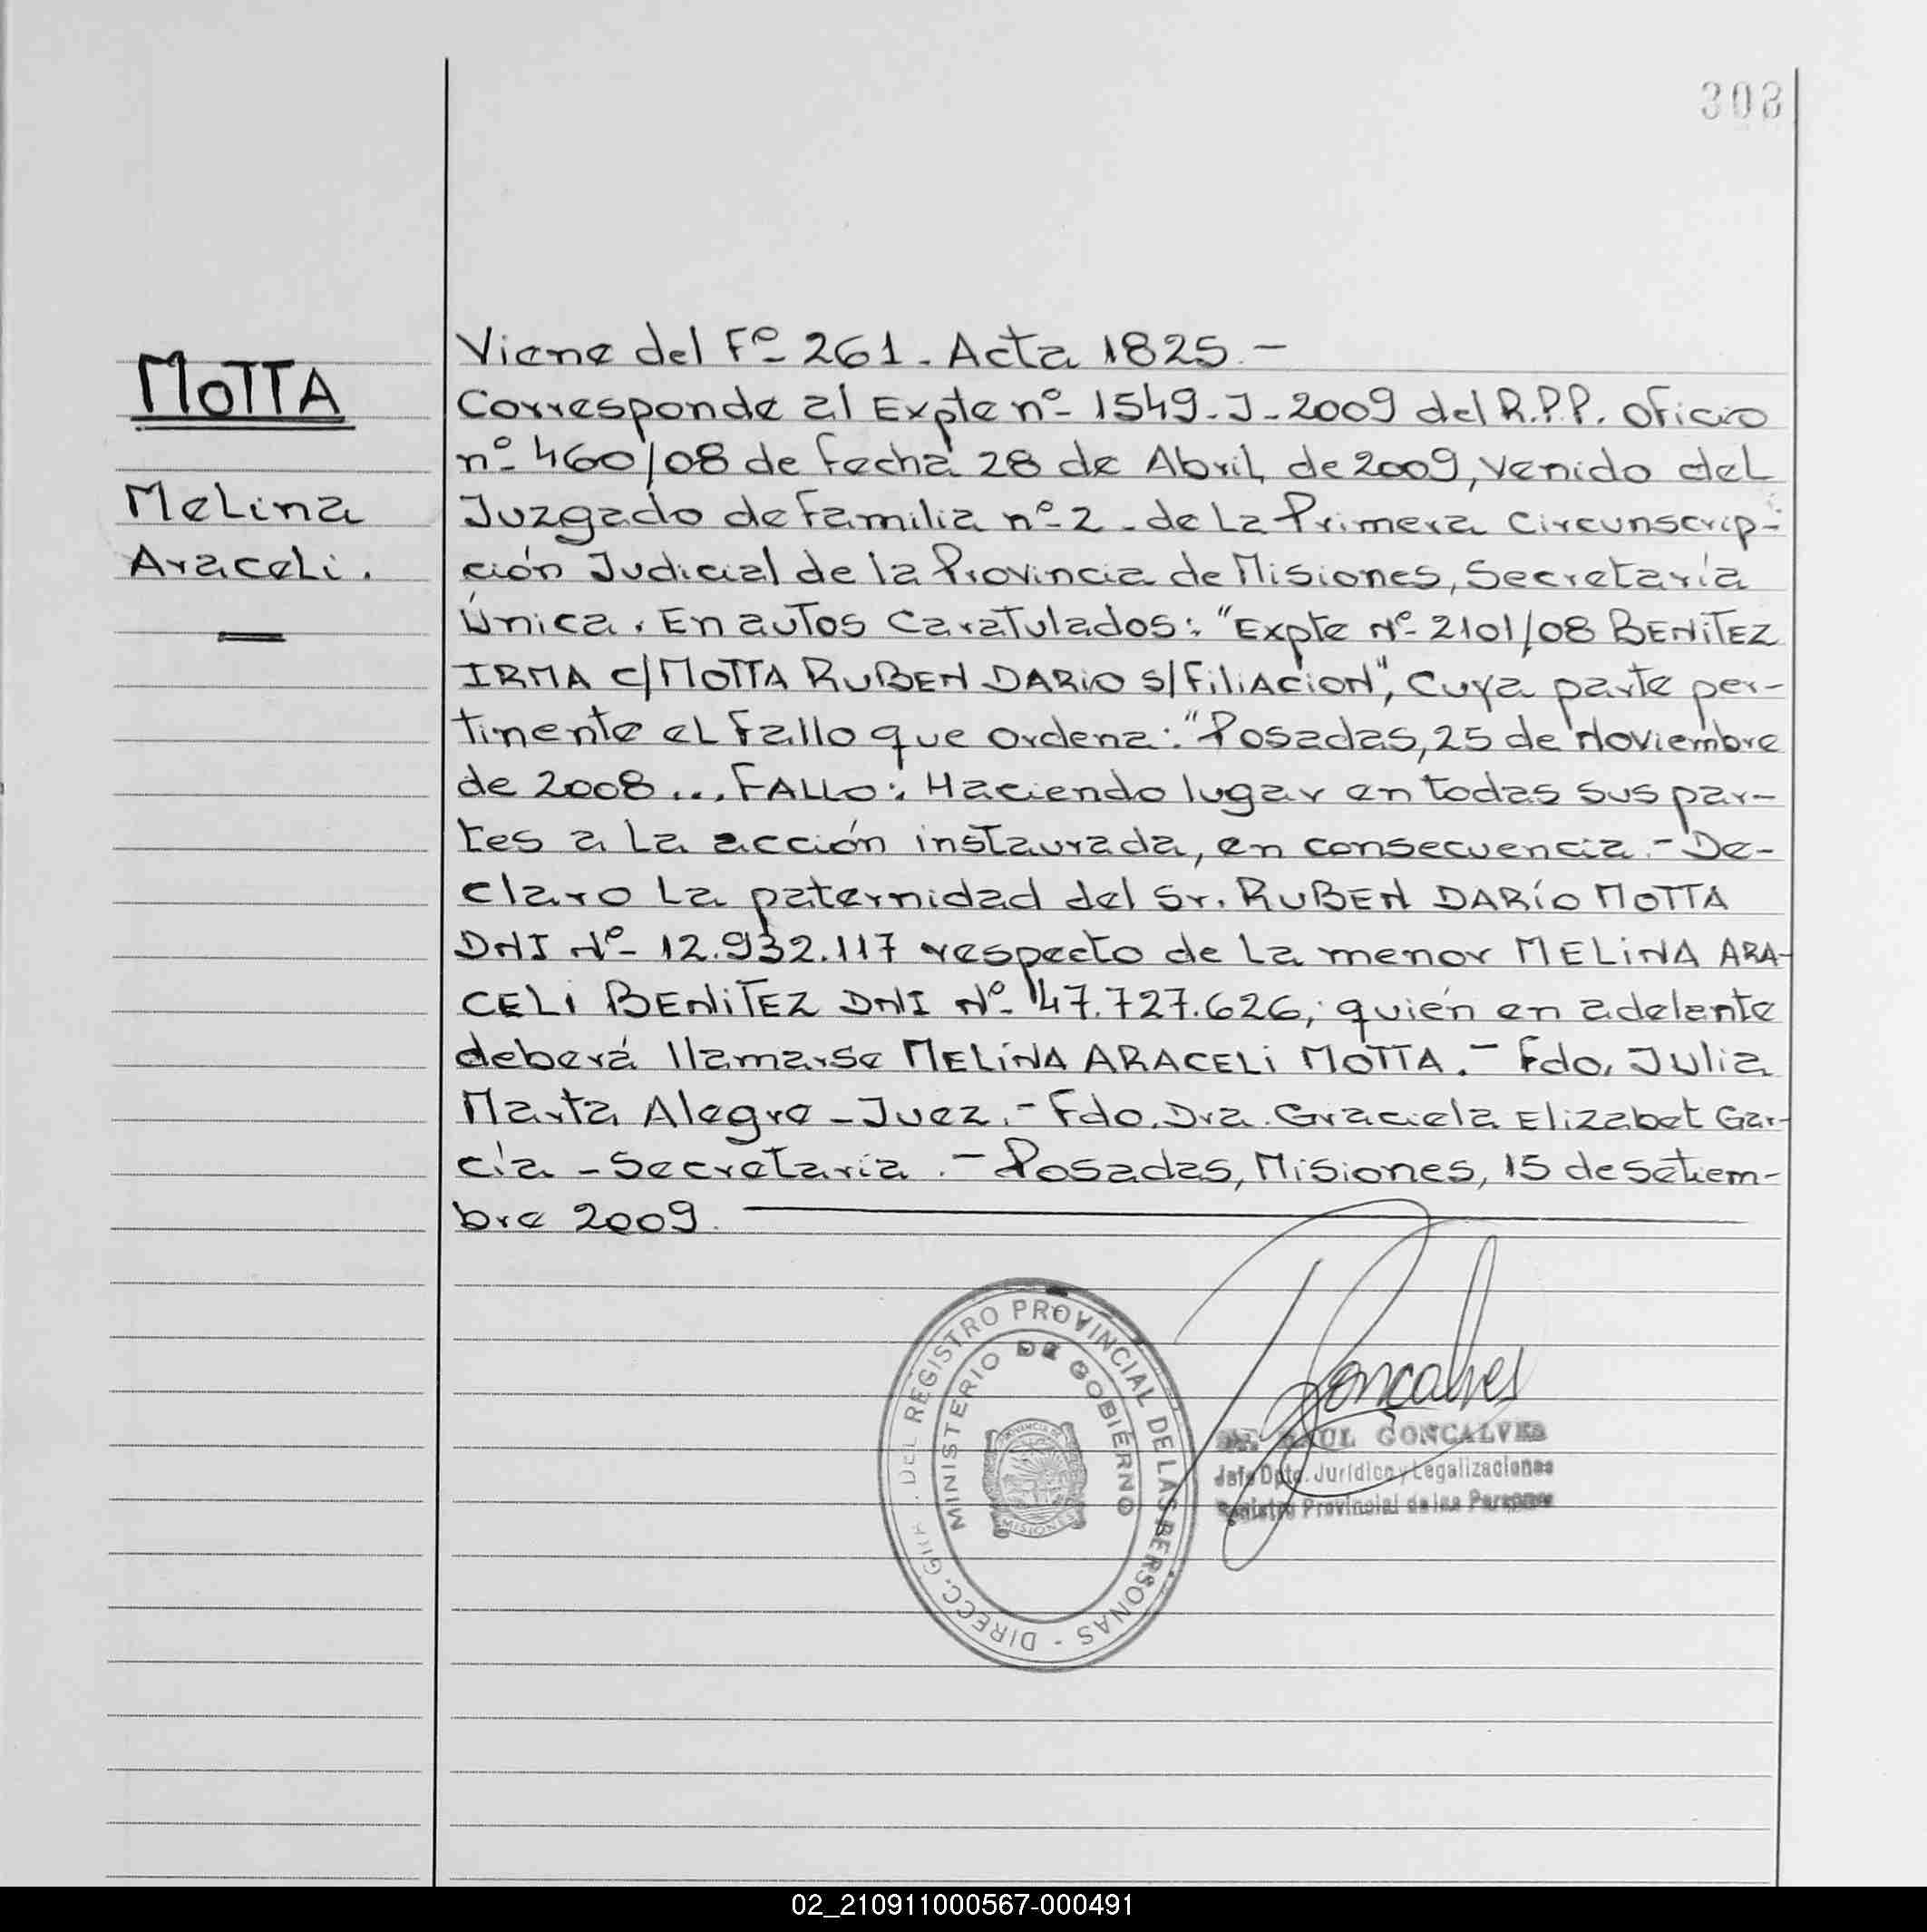 308
MOTTA
Melina
Araceli.
Viene del Fº 261. Acta 1825.-
Corresponde al Expte nº 1549-J-2009 del R.P.P. oficio
nº 460/08 de fecha 28 de Abril, de 2009, venido del
Juzgado de Familia nº 2 - de La Primera Circunscrip-
ción Judicial de la Provincia de Misiones, Secretaría
Única. En autos Caratulados: "Expte Nº 2101/08 BENITEZ
IRMA c/MOTTA RUBEN DARIO s/FILIACION", Cuya parte per-
tinente el fallo que ordena: "Posadas, 25 de Noviembre
de 2008... FALLO: Haciendo lugar en todas sus par-
tes a La acción instaurada, en consecuencia.- De-
claro La paternidad del Sr. RUBEN DARÍO MOTTA
DNI Nº 12.932.117 respecto de La menor MELINA ARA-
CELI BENITEZ DNI Nº 47.727.626; quién en adelante
deberá llamarse MELINA ARACELI MOTTA.- Fdo. Julia
Marta Alegre - Juez.- Fdo. Dra. Graciela Elizabet Gar-
cía - Secretaria.- Posadas, Misiones, 15 de Setiem-
bre 2009.
REGISTRO PROVINCIAL DE LAS PERSONAS - DIRECC. GRAL. DEL
MINISTERIO DE GOBIERNO
MISIONES
Goncalves
RAUL GONCALVES
Jefe Dpto. Jurídico y Legalizaciones
Registro Provincial de las Personas
02_210911000567-000491